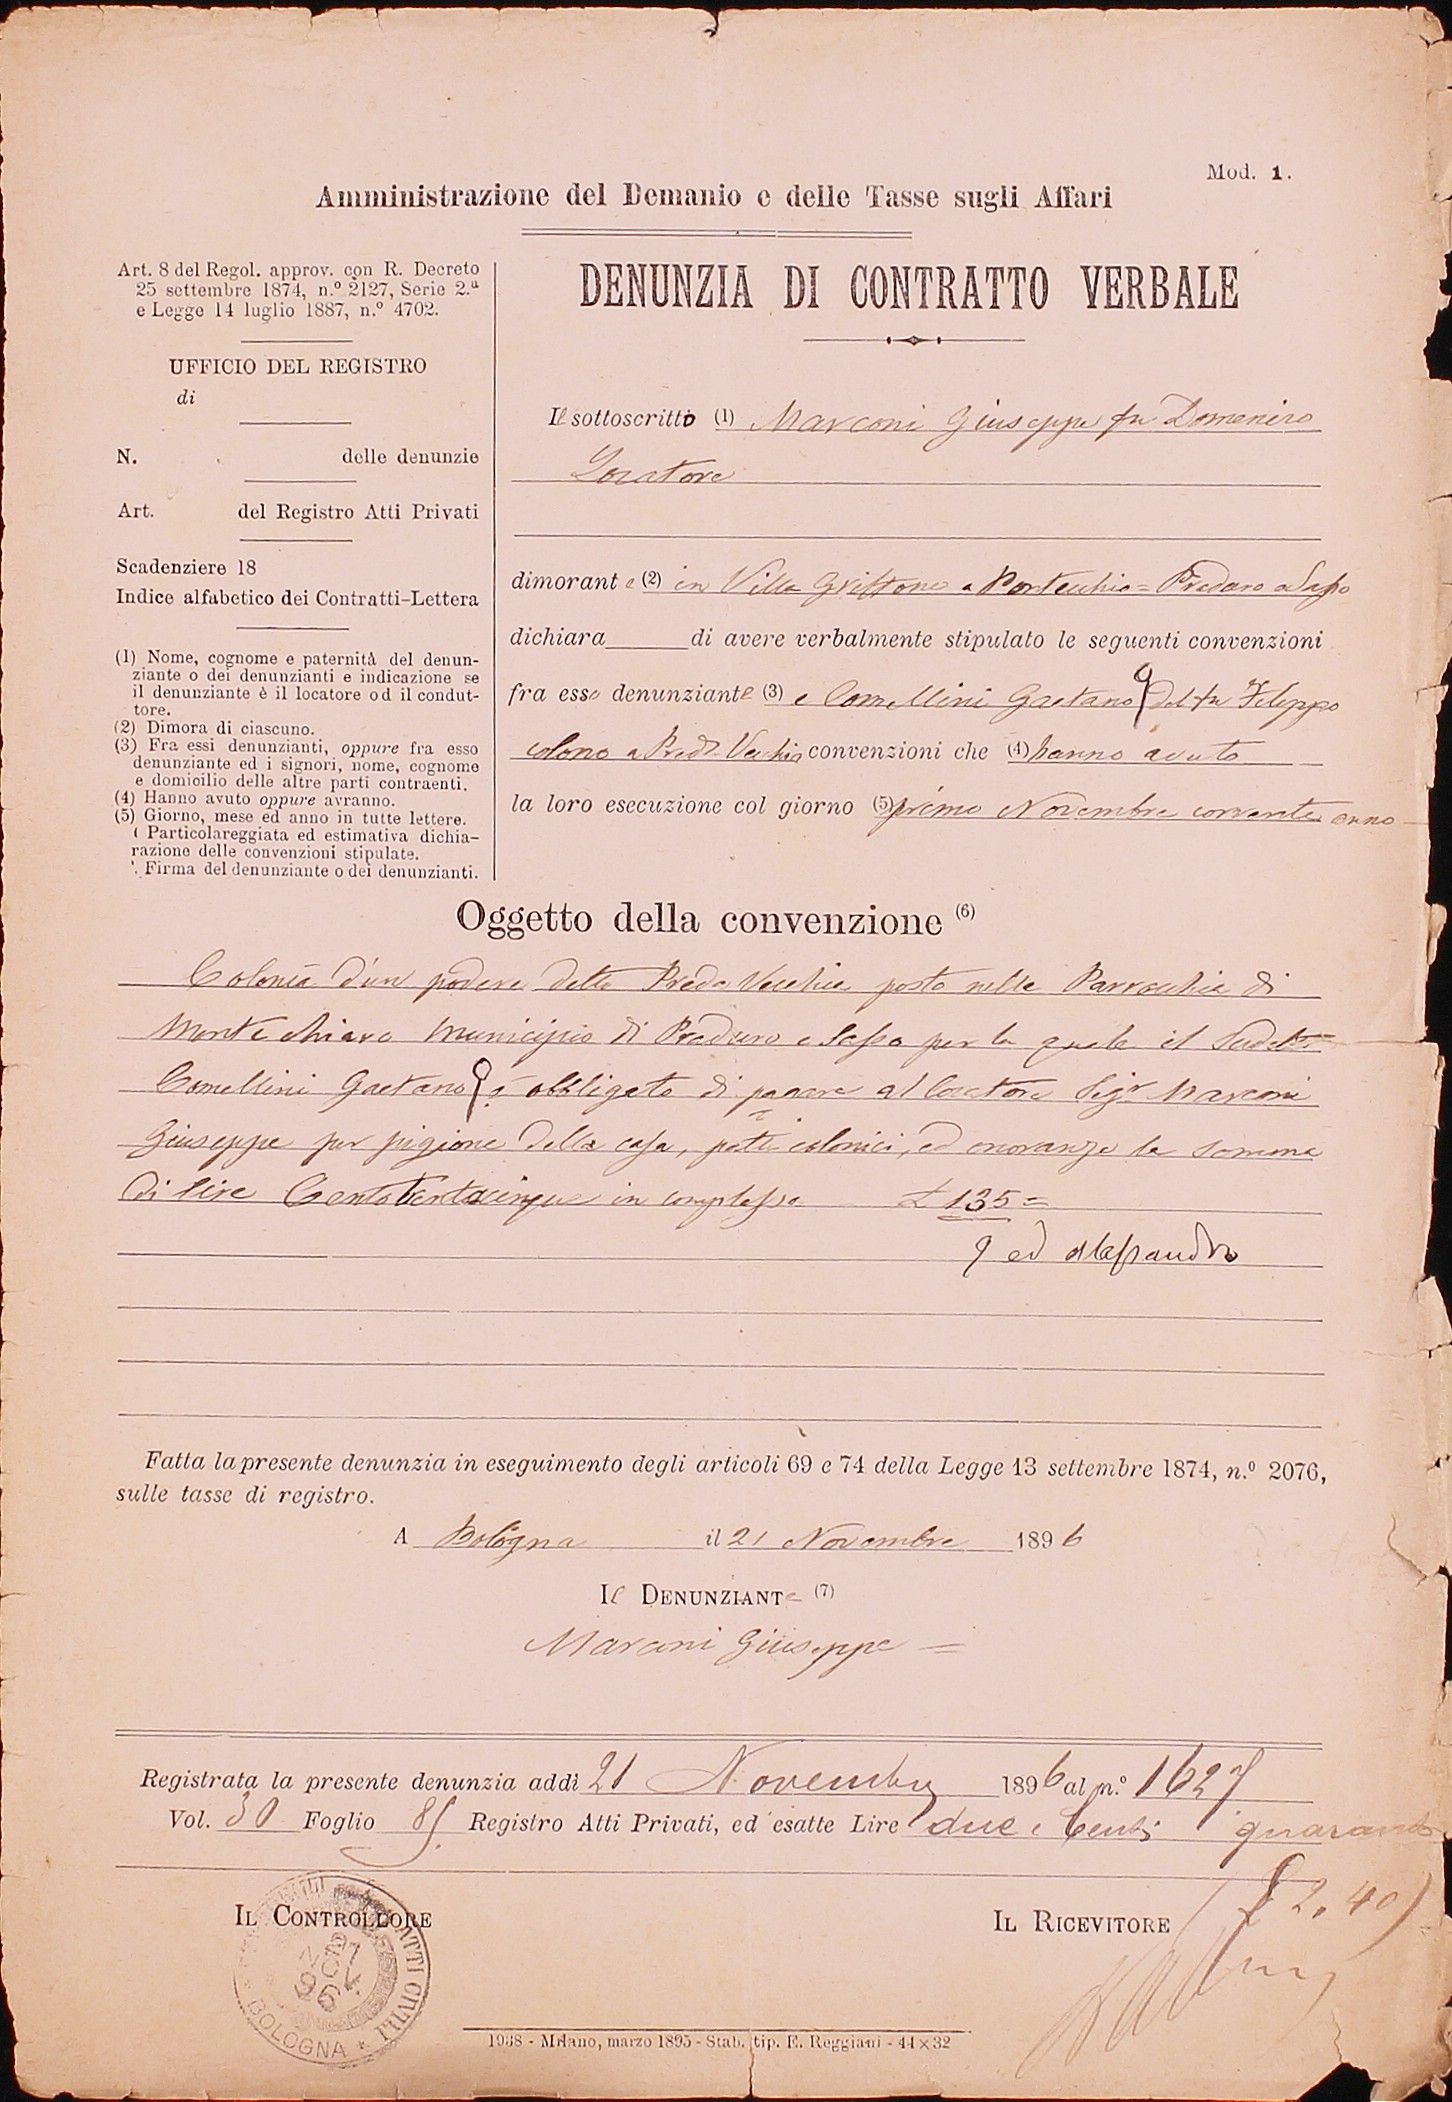 Mod. 1.
Amministrazione del Demanio e delle Tasse sugli Affari
Art. 8 del Regol. approv. con R. Decreto
25 settembre 1874, n.º 2127, Serie 2.ª
e Legge 14 luglio 1887, n.º 4702.
UFFICIO DEL REGISTRO
di
N. delle denunzie
Art. del Registro Atti Privati
Scadenziere 18
Indice alfabetico dei Contratti-Lettera
(1) Nome, cognome e paternità del denun-
ziante o dei denunzianti e indicazione se
il denunziante è il locatore od il condut-
tore.
(2) Dimora di ciascuno.
(3) Fra essi denunzianti, oppure fra esso
denunziante ed i signori, nome, cognome
e domicilio delle altre parti contraenti.
(4) Hanno avuto oppure avranno.
(5) Giorno, mese ed anno in tutte lettere.
( Particolareggiata ed estimativa dichia-
razione delle convenzioni stipulate.
Firma del denunziante o dei denunzianti.
DENUNZIA DI CONTRATTO VERBALE
Il sottoscritto (1) Marconi Giuseppe fu Domenico
Locatore
dimorante (2) in Villa Griffone a Pontecchio = Praduro e Sasso
dichiara di avere verbalmente stipulato le seguenti convenzioni
fra esso denunziante (3) e Comellini Gaetano del fu Filippo
colono a Preda Vecchia convenzioni che (4) hanno avuto
la loro esecuzione col giorno (5) primo Novembre corrente anno
Oggetto della convenzione (6)
Colonia d'un podere detto Preda Vecchia posto nella Parrocchia di
Monte chiaro Municipio di Praduro e Sasso per la quale il Sudetto
Comellini Gaetano è obbligato di pagare al locatore Sigr Marconi
Giuseppe per pigione della casa, patti colonici, ed onoranze la somma
di lire Centotrentacinque in complesso £ 135 =
ed Alessandro
Fatta la presente denunzia in eseguimento degli articoli 69 e 74 della Legge 13 settembre 1874, n.º 2076,
sulle tasse di registro.
A Bologna il 21 Novembre 1896
Il DENUNZIANTE (7)
Marconi Giuseppe =
Registrata la presente denunzia addì 21 Novembre 1896 al n.º 1627
Vol. 30 Foglio 85 Registro Atti Privati, ed esatte Lire due e Centi quaranta
(£ 2,40)
IL CONTROLLORE
IL RICEVITORE
ATTI CIVILI
21
NOV
96
* BOLOGNA *
1938 - Milano, marzo 1895 - Stab. tip. E. Reggiani - 44×32